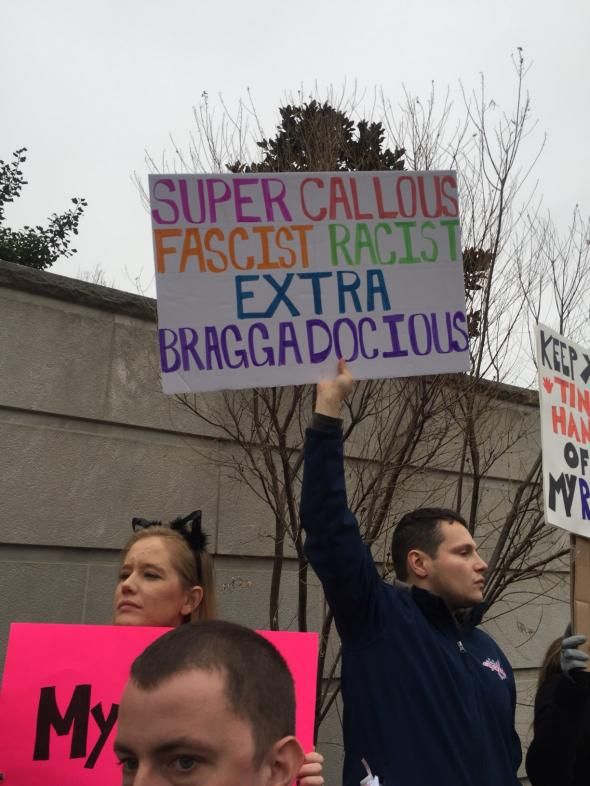 SUPER CALLOUS
FASCIST RACIST
EXTRA
BRAGGADOCIOUS
KEEP
HAN
OF
MY R
TIN
My